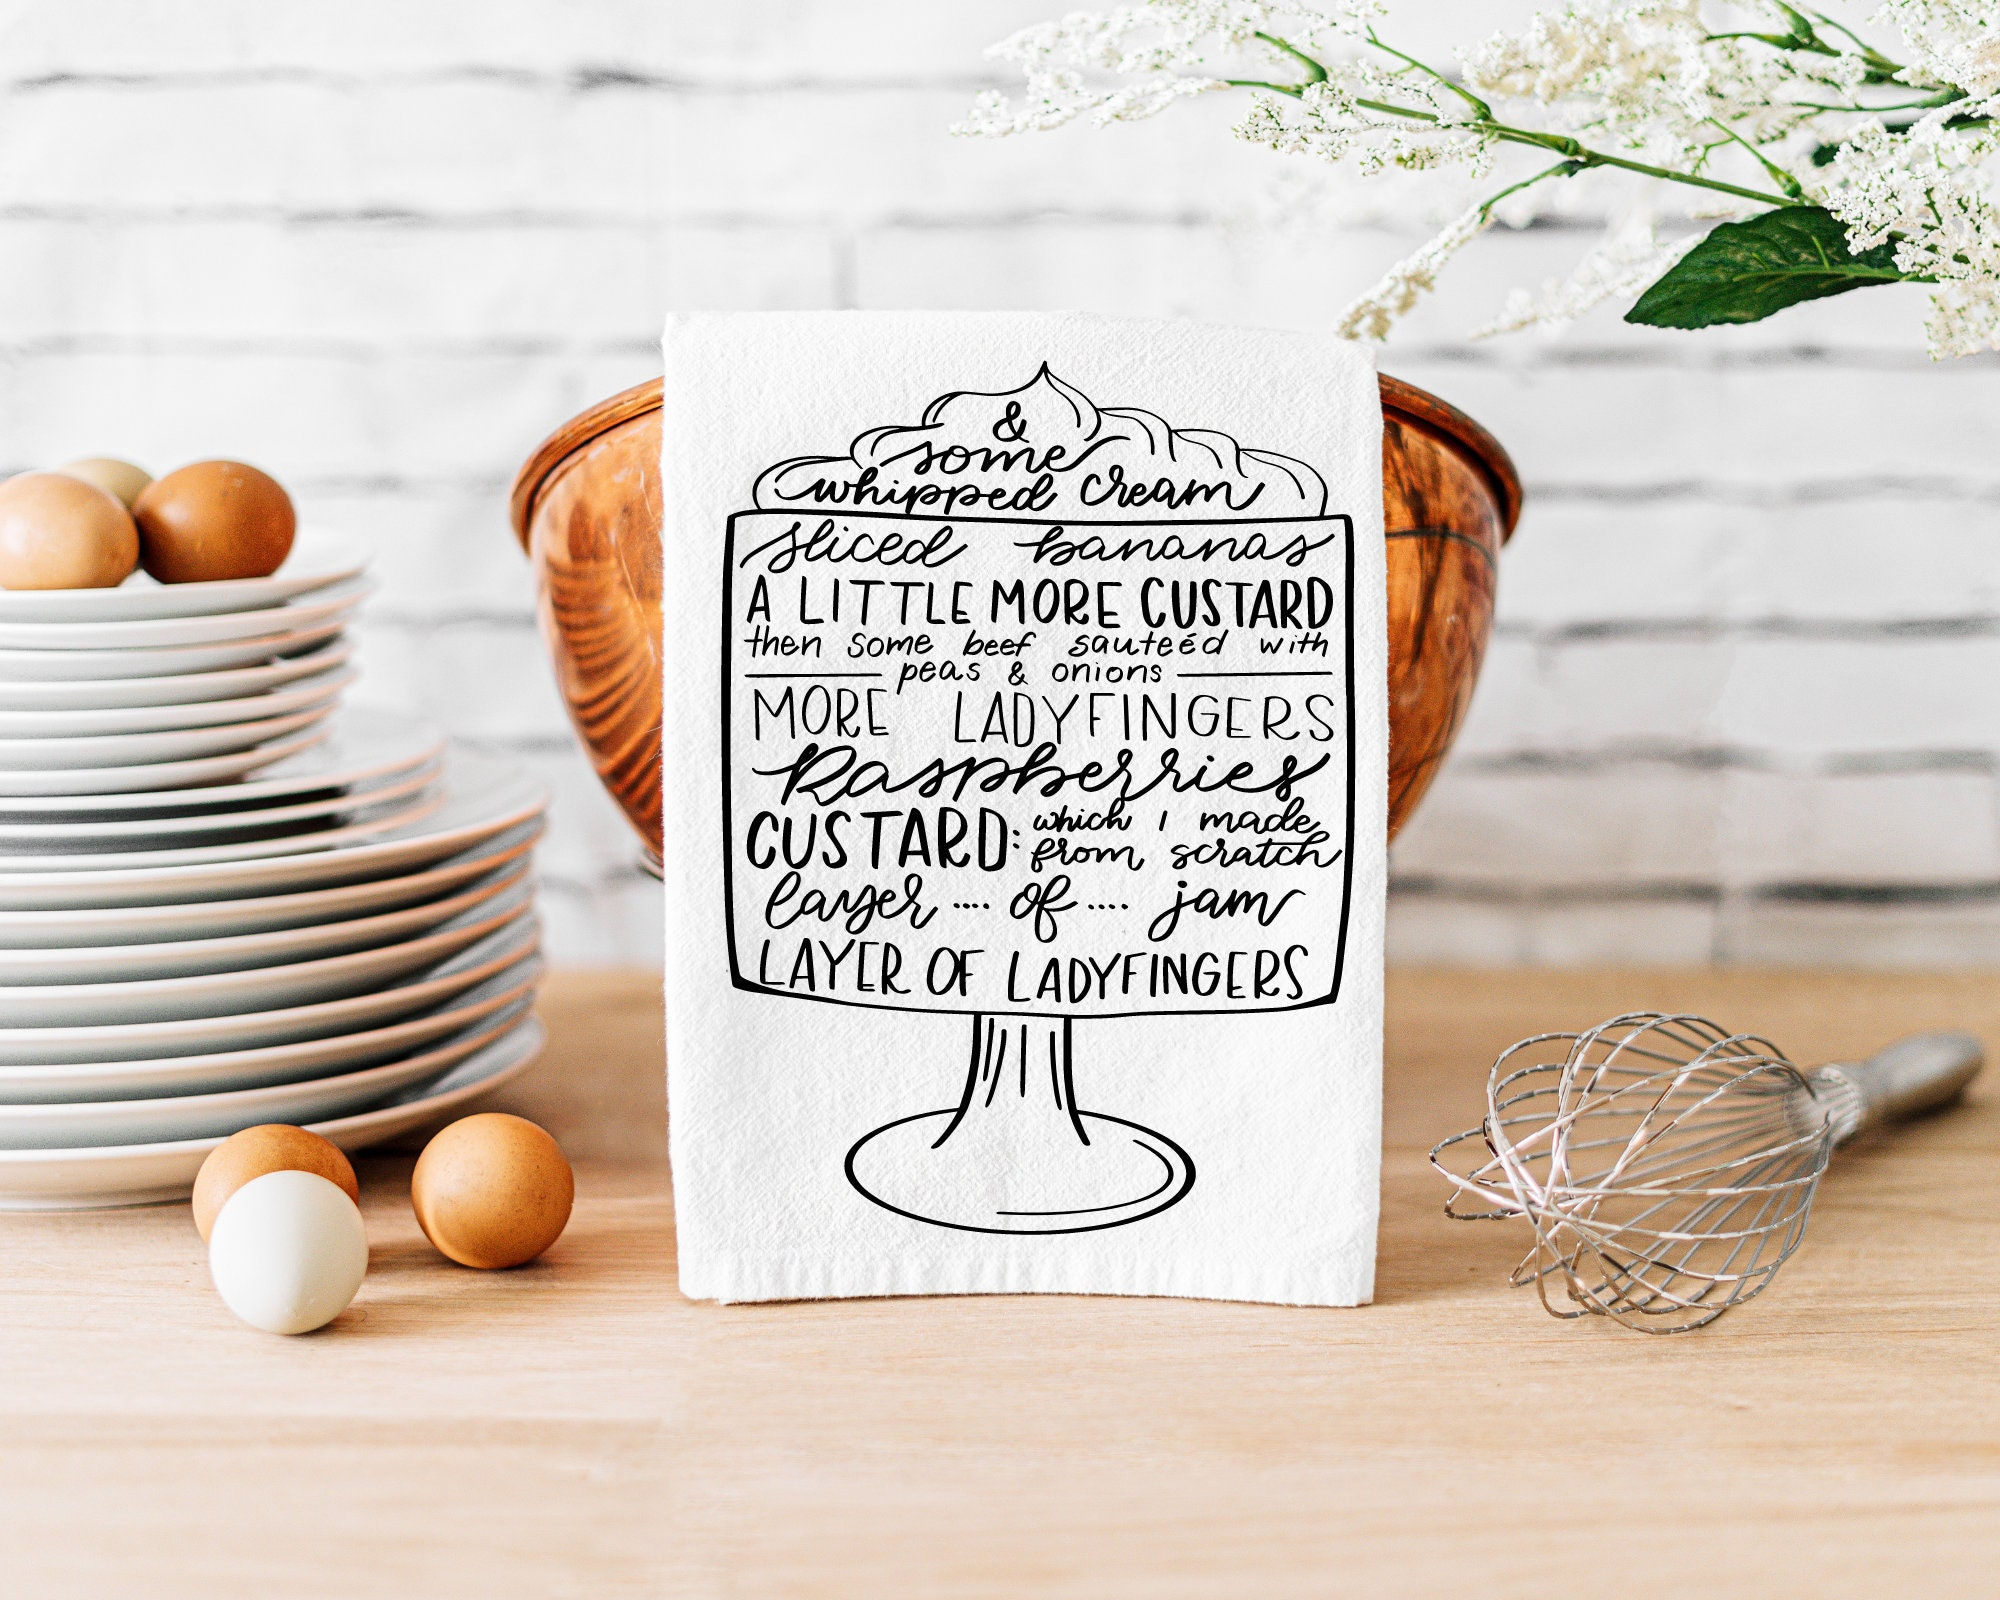 &
some
whipped cream
sliced bananas
A LITTLE MORE CUSTARD
then some beef sauteéd with
peas & onions
MORE LADYFINGERS
Raspberries
CUSTARD: which I made
from scratch
layer .... of .... jam
LAYER OF LADYFINGERS